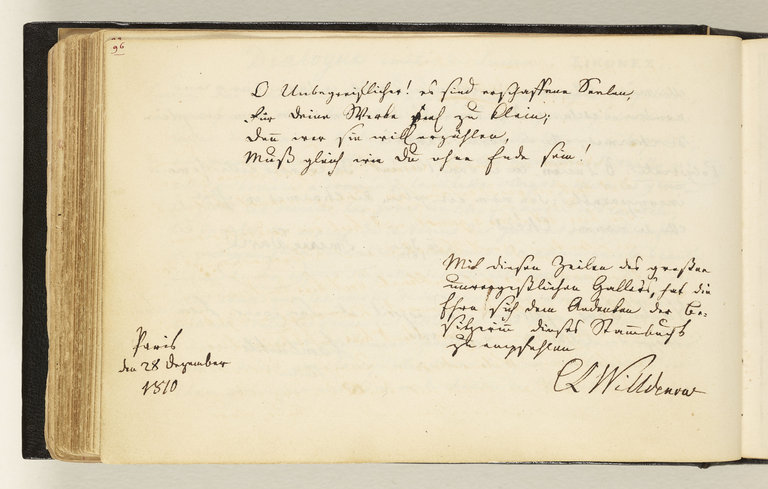 96
O Unbegreiflicher! es sind erschaffene Seelen,
Für deine Werke viel zu klein;
Denn wer sie will erzählen,
Muß gleich wie Du ohne Ende sein.
Mit diesen Zeilen des großen
unvergeßlichen Hallers, hat die
Ehre sich dem Andenken der Be-
sitzerinn dieses Stammbuchs
zu empfehlen
Paris
den 28 Dezember
1810
CLWilldenow